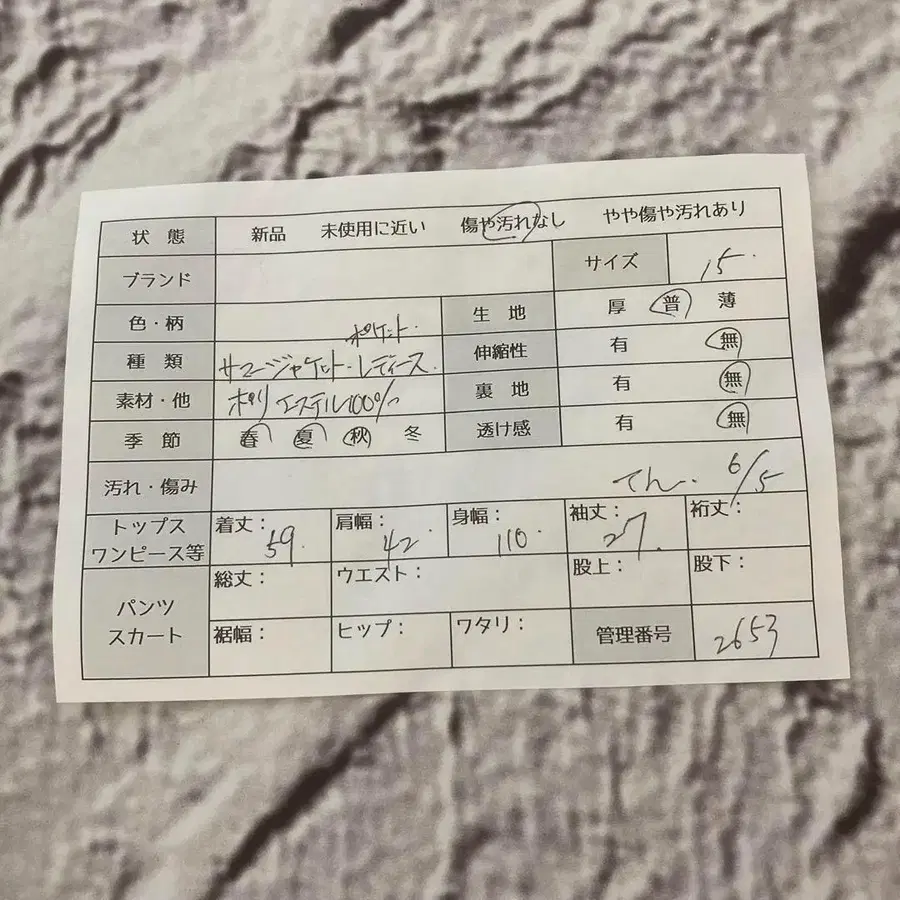 状 態 新品 未使用に近い 傷や汚れなし やや傷や汚れあり
ブランド サイズ 15
色・柄 生 地 厚 普 薄
ポケット
種 類 サマージャケット・レディース 伸縮性 有 無
素材・他 ポリエステル100% 裏 地 有 無
季 節 春 夏 秋 冬 透け感 有 無
汚れ・傷み てん 6/5
トップス ワンピース等 着丈: 59 肩幅: 42 身幅: 110 袖丈: 27 裄丈:
パンツ スカート 総丈: ウエスト: 股上: 股下:
裾幅: ヒップ: ワタリ: 管理番号 2653